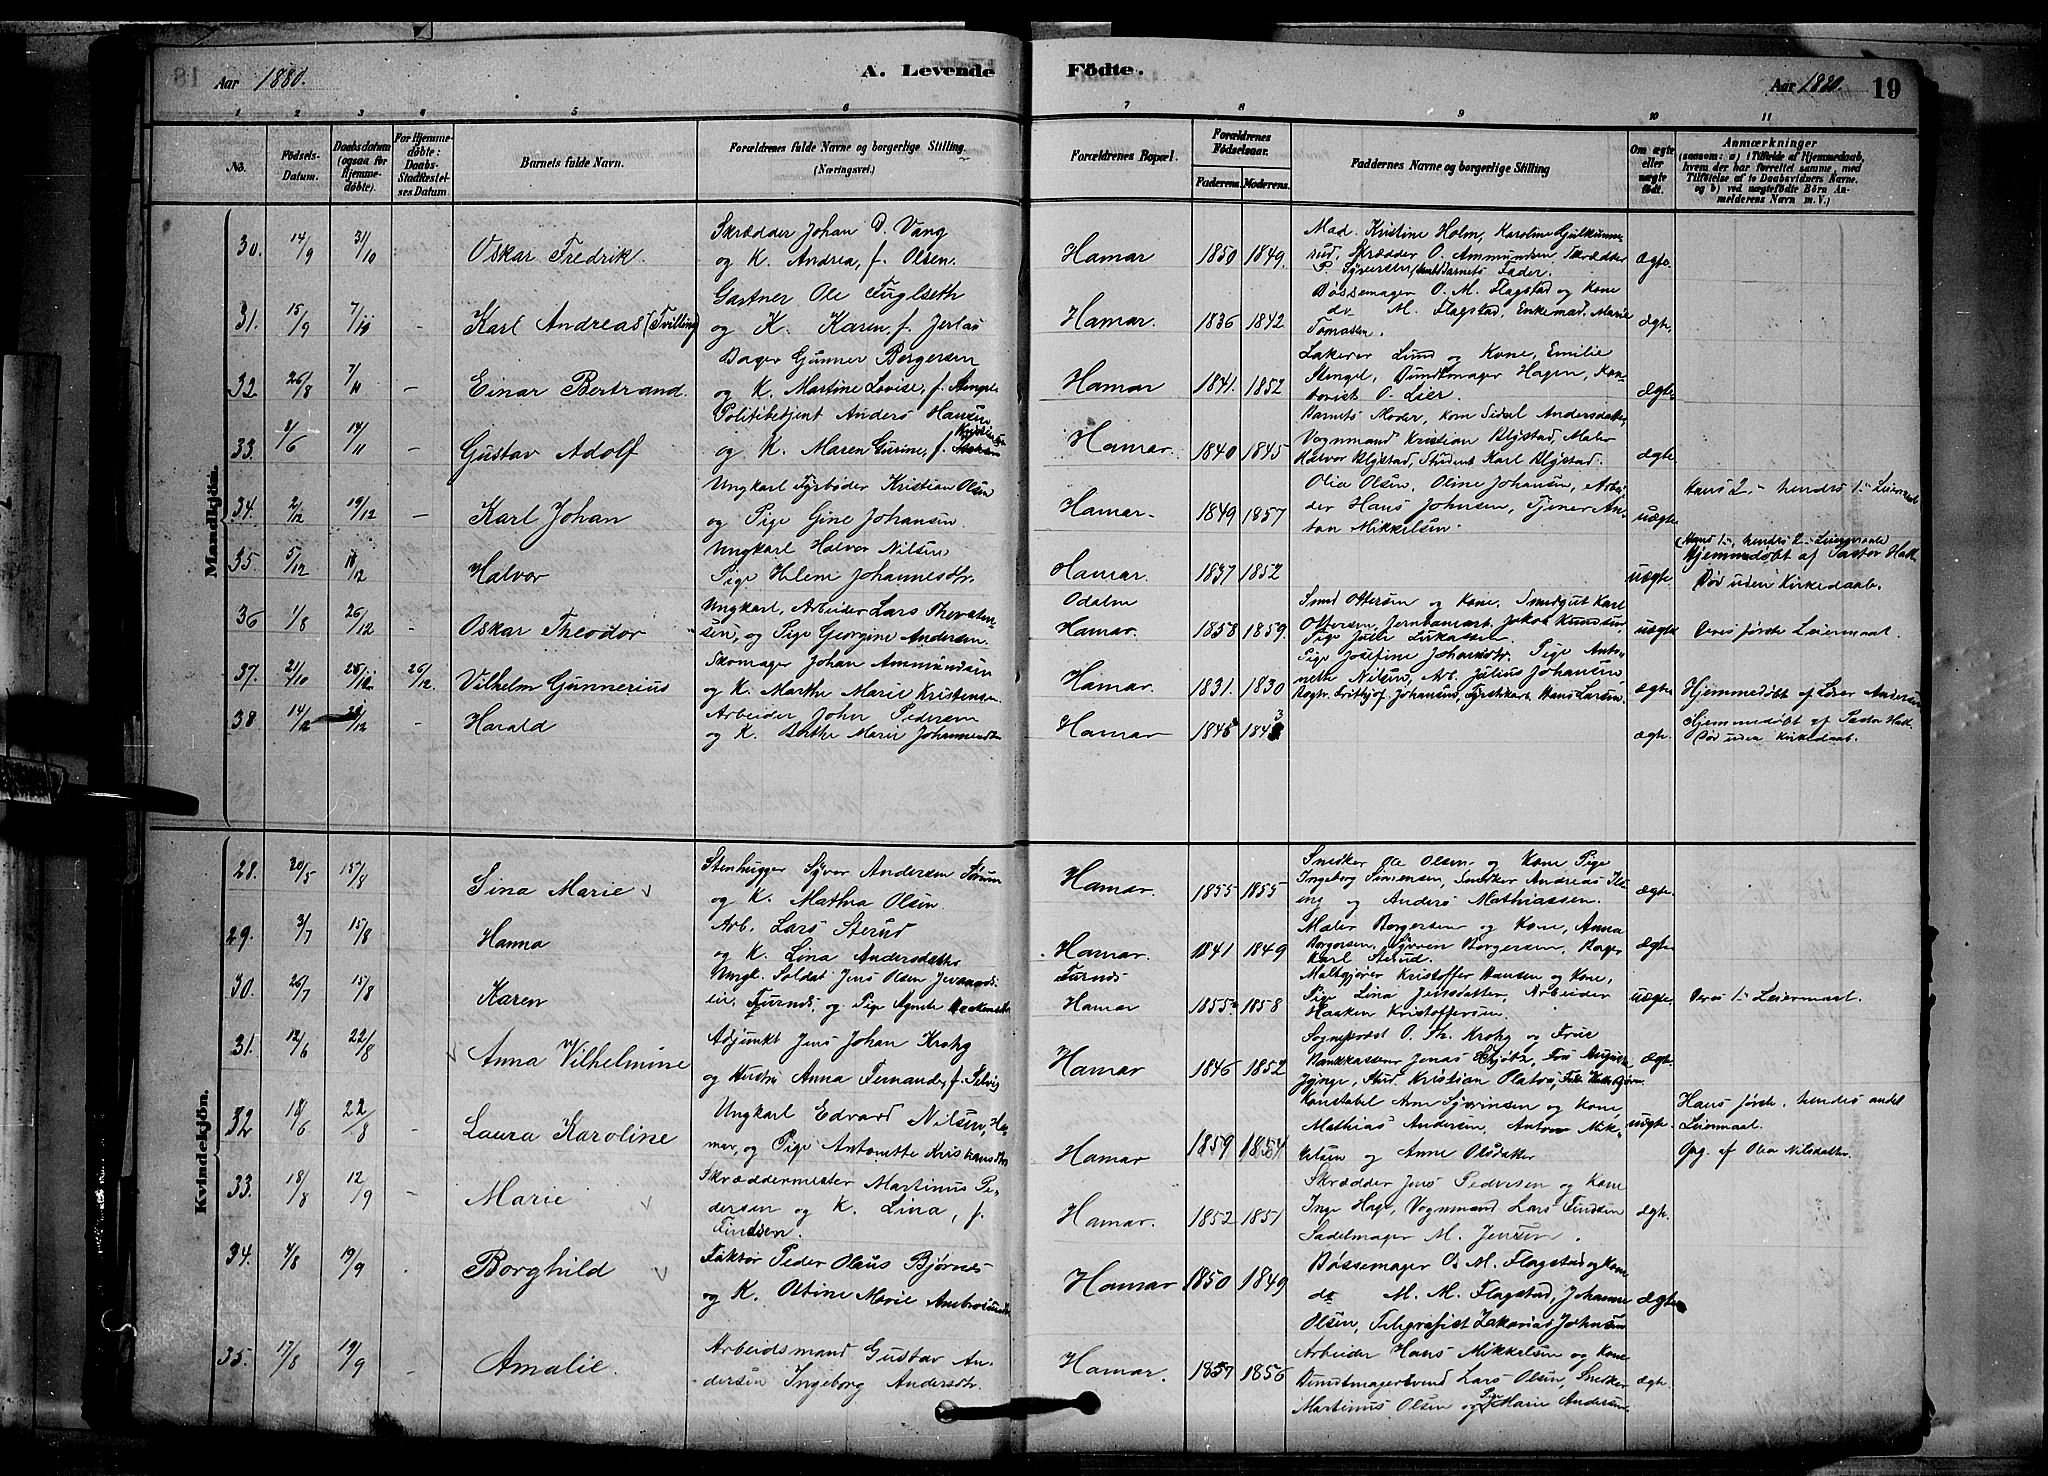 18 Aar 1880. A. Levende Fødte. Aar 1880. 19
1 2 3 4 5 6 7 8 9 10 11
No. Fødsels-Datum. Daabsdatum (ogsaa for Hjemmedøbte). For Hjemmedøbte: Daabs-Stadfæstelses Datum Barnets fulde Navn. Forældrenes fulde Navne og borgerlige Stilling. (Næringsvei.) Forældrenes Bopæl. Forældrenes Fødselsaar. Faderens. Moderens. Faddernes Navne og borgerlige Stilling Om ægte eller uægte født. Anmærkninger (saasom: a) i Tilfælde af Hjemmedaab, hvem der har forrettet samme, med Tilføielse af to Daabsvidners Navne, og b) ved uægtefødte Børn Anmelderens Navn m. V.)
Mandkjøn.
30. 14/9 31/10 Oskar Fredrik. Skrædder Johan D. Vang
og K. Andrea, f. Olsen. Hamar 1850 1849. Mad. Kristine Holm, Karoline
Skrædder O. Ammundsen Skrædder
P. Syversen, Barnets Fader. ægte.
31. 15/9 7/11 - Karl Andreas (Tvilling) Gartner Ole Fuglseth
og K. Karen, f. Hamar. 1836 1842 Bøssemager O. M. Flagstad og Kone
M. Flagstad, Enkemad. Marie
Tomassen. ægte.
32 26/8 7/11 - Einar Bertrand. Bager Gunner Borgersen
og K. Martine Lovise, f. Hamar 1841. 1852 Lakerer Lund og Kone, Emilie
Stengel, Bundtmager Hagen, Kontorist O. Lier. ægte
33. 8/6 14/11 - Gustav Adolf Politibetjent Anders Hansen
og K. Maren Gurine, f. Hamar. 1840 1845 Barnets Moder, Kone Sidsel Andersdatter
Vognmand Kristian Blystad, Maler
Halvor Blystad, Student Karl Blystad. ægte
34. 2/12 19/12 - Karl Johan Ungkarl Fyrbøder Kristian Olsen
og Pige Gine Johansen Hamar. 1849 1857 Olia Olsen, Oline Johansen, Arbeider Hans Johnsen, Tjener Anton Mikkelsen. uægte Hans 2. - hendes 1. Leiermaal
35. 5/12 18/12 Halvor Ungkarl Halvor Nilsen
Pige Helene Johannesdtr. Hamar. 1837 1852 uægte. (Hans 1., hendes 2. Leiermaal)
Hjemmedøbt af Pastor
Død uden Kirkedaab.
36 1/8 26/12 - Oskar Theodor Ungkarl, Arbeider Lars
og Pige Georgine Andersen. Odalen
Hamar. 1858 1859. Smed Ottersen og Kone, Smedgut Karl
Ottersen, Jernbanearb. Jakob Knudsen,
Pige Julie uægte Deres første Leiermaal.
37. 21/10 25/12 26/12 Vilhelm Gunnerius Skomager Johan Ammundsen
og K. Marthe Marie Kristensen Hamar. 1831. 1830 Pige Josefine Johansdtr. Pige Antonette Nilsen, Arb. Julius Johansen,
Fritjof Johansen, Hans Larsen. ægte Hjemmedøbt af Andersen
38 14/12 /12 Harald Arbeider John Pedersen
og K. Berthe Marie Johannesdtr Hamar 1845 1843 ægte. Hjemmedøbt af Pastor
Død uden Kirkedaab.
Kvindekjøn.
28. 20/5 15/8 Sina Marie Stenhugger Syver Andersen
og K. Mathea Olsen. Hamar. 1855 1855 Snedker Ole Olsen og Kone Pige
Ingeborg Simensen, Snedker Andreas
og Anders Mathiassen. ægte.
29. 3/7 15/8 Hanna Arb. Lars Sterud
og K. Lina Andersdatter Hamar. 1841 1849 Maler Borgersen og Kone, Anna
Borgersen, Søren Borgersen, Bager
Karl Sterud. ægte
30. 26/7 15/8 Karen Ungk. Soldat Jens Olsen
Furnes, og Pige Agnete Furnes
Hamar 1855 1858 Maltgjører Kristoffer Hansen og Kone,
Pige Lina Jensdatter, Arbeider
Haaken Kristoffersen. uægte. Deres 1. Leiermaal.
31. 12/6 22/8 Anna Vilhelmine Adjunkt Jens Johan Krohg
og Hustru Anna Fernanda, f. Hamar 1846 1852 Sogneprest O. Th. Krohg og Frue
Bankkasserer Jonas Frue Augusta
Stud. Kristian ægte.
32 18/6 22/8 Laura Karoline Ungkarl Edvard Nilsen, Hamar, og Pige Antonette Hamar 1859 1854 Konstabel Arne Syvrinsen og Kone,
Mathias Andersen, Anton Mikkelsen og Anne uægte. Hans første, hendes andet
Leiermaal.
Opg. af Olea Nilsdatter.
33. 18/8 12/9 - Marie Skræddermester Martinus Pedersen og K. Lina, f.
Findsen. Hamar. 1852 1851 Skrædder Jens Pedersen og Kone
Inge Hage, Vognmand Lars Findsen
Sadelmager M. Jensen. ægte.
34. 4/8 19/9 Borghild Faktor Peder Olaus Bjørnes
og K. Otine Marie Hamar 1850 1849 Bøssemager O. M. Flagstad og Kone
M. M. Flagstad, Johanne
Olsen, Telegrafist Zakarias Johnsen ægte
35. 17/8 19/9 - Amalie. Arbeidsmand Gustav Andersen Ingeborg Andersdtr. Hamar. 1857 1856 Arbeider Hans Mikkelsen og Kone
Bundtmagersvend Lars Olsen, Snedker
Martinus Olsen og Pige Marie Andersen. ægte.